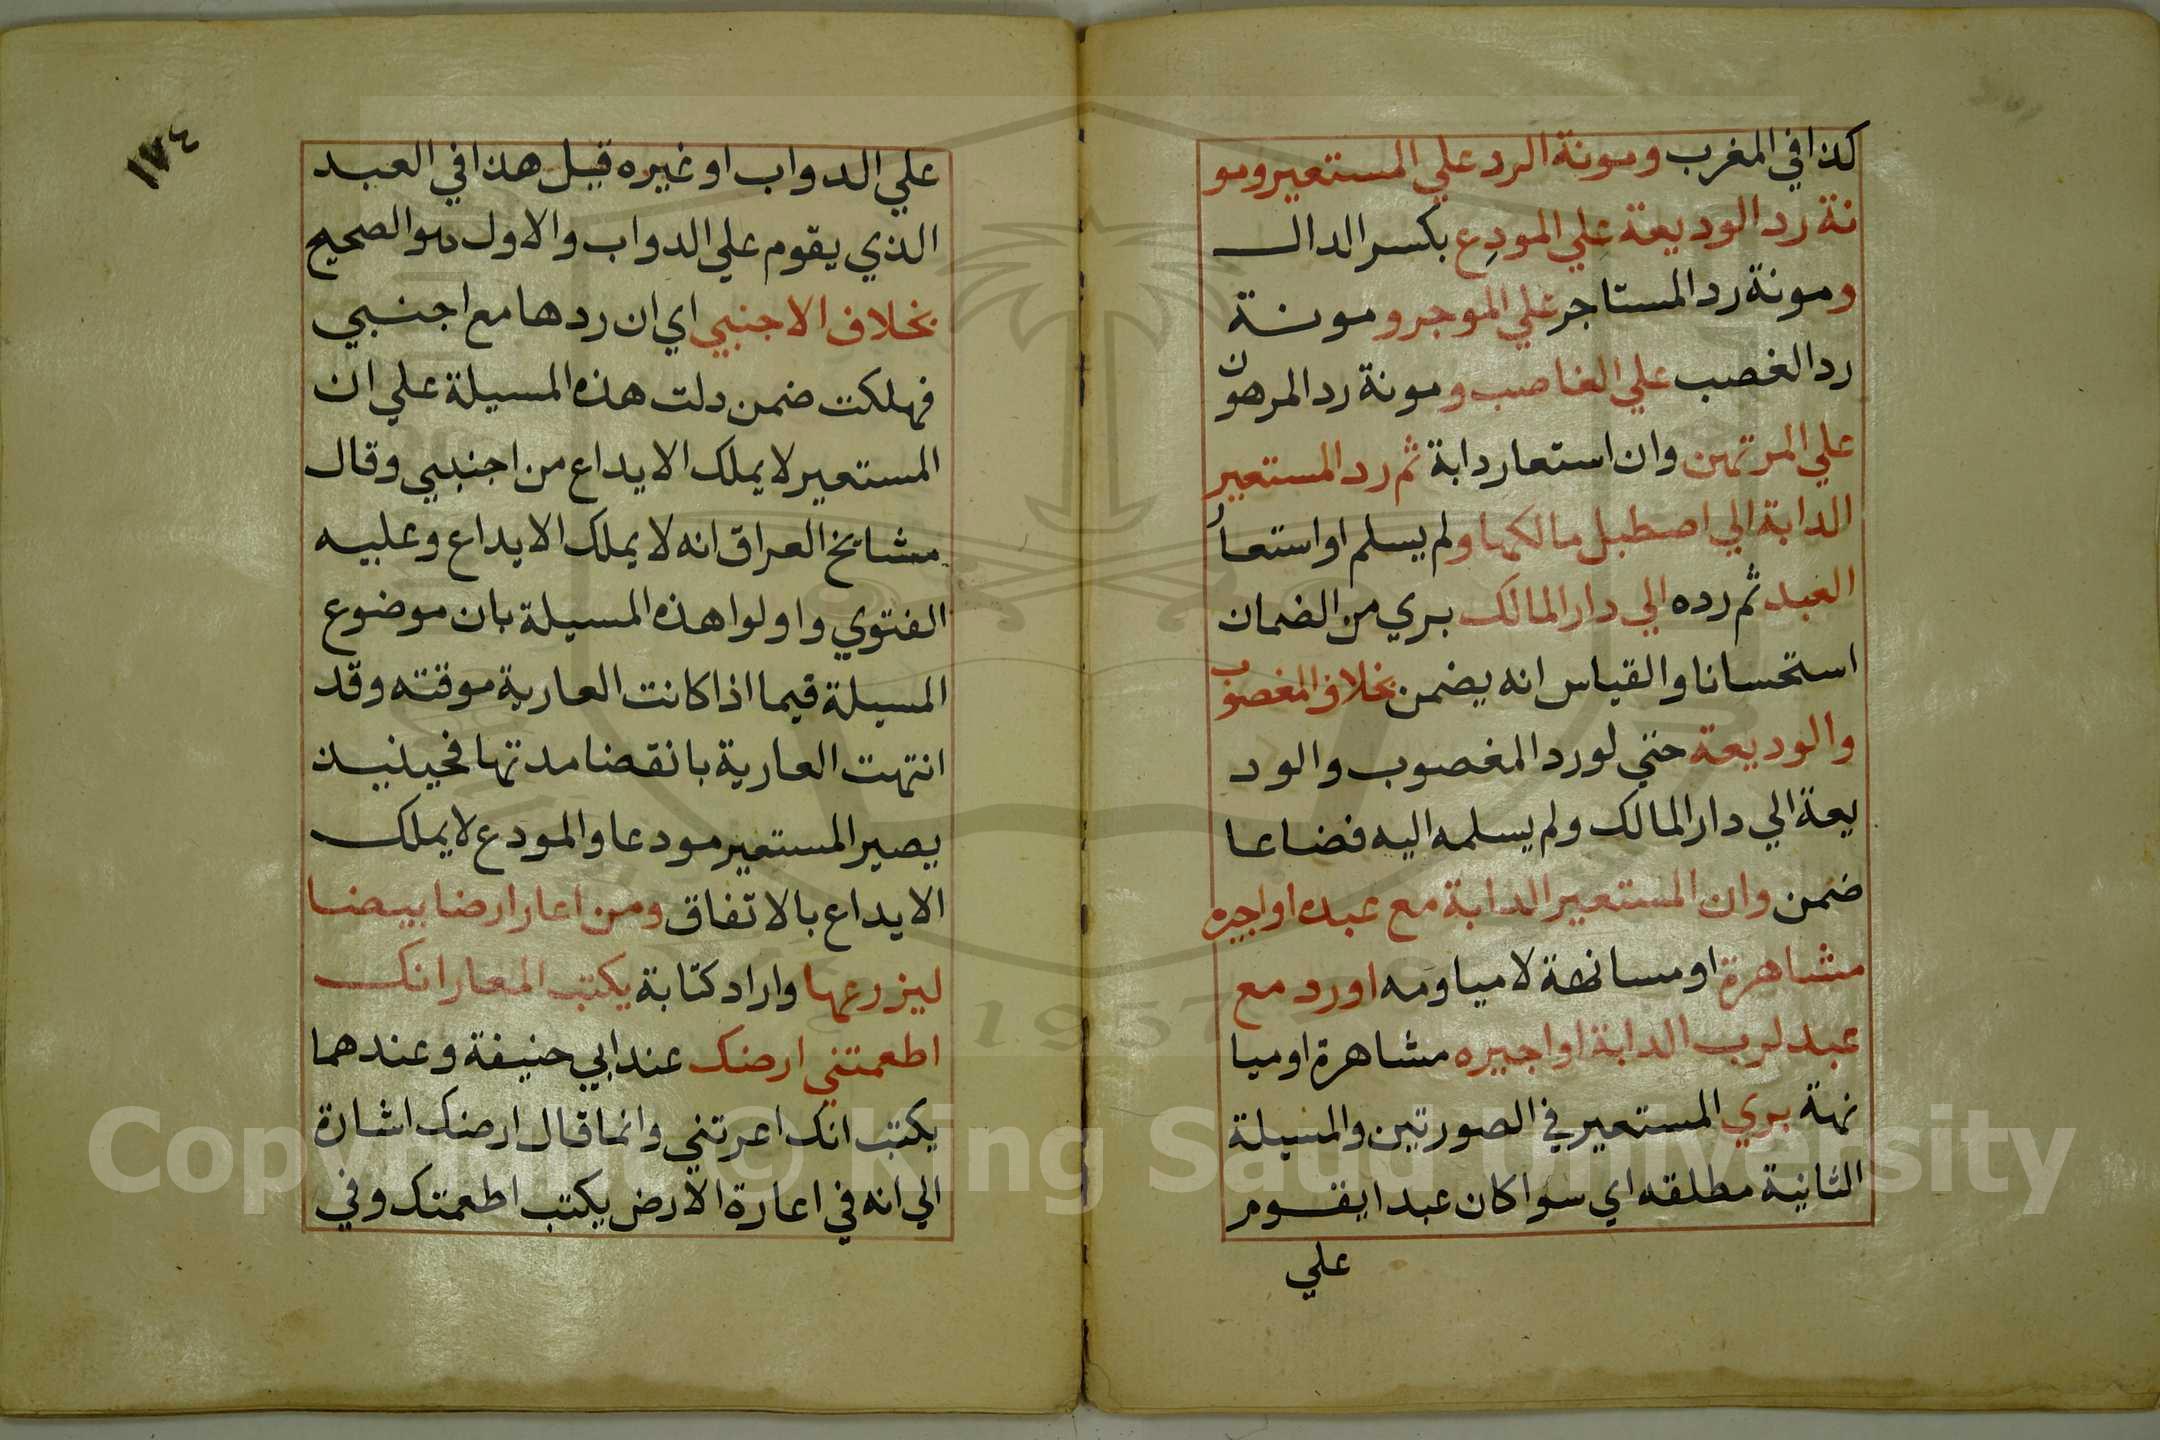 كذا في المغرب ومونة الرد علي المستعير ومو
نة رد الوديعة علي المودِع بكسر الدال
ومونة رد المستاجر علي الموجر ومونة
رد الغصب علي الغاصب ومونة رد المرهون
علي المرتهن وان استعار دابة ثم رد المستعير
الدابة الي اصطبل مالكها ولم يسلم او استعار
العبد ثم رده الي دار المالك بري من الضمان
استحسانا والقياس انه يضمن بخلاف المغصوب
والوديعة حتي لو رد المغصوب والود
يعة الي دار المالك ولم يسلمه اليه فضاعا
ضمن وان المستعير الدابة مع عبده او اجيره
مشاهرة او مسانهة لا مياومه او رد مع
عبد لرب الدابة او اجيره مشاهرة او ميا
نهة بري المستعير في الصورتين والمسيلة
الثانية مطلقه اي سوا كان عبدا يقوم
علي
١٧٤
علي الدواب او غيره قيل هذا في العبد
الذي يقوم علي الدواب والاول هو الصحيح
بخلاف الاجنبي اي ان ردها مع اجنبي
فهلكت ضمن دلت هذه المسيلة علي ان
المستعير لا يملك الايداع من اجنبي وقال
مشايخ العراق انه لا يملك الايداع وعليه
الفتوي واولوا هذه المسيلة بان موضوع
المسيلة فيما اذا كانت العارية موقته وقد
انتهت العارية بانقضا مدتها فحينيذ
يصير المستعير مودعا والمودع لا يملك
الايداع بالاتفاق ومن اعار ارضا بيضا
ليزرعها واراد كتابة يكتب المعار انك
اطعمتني ارضك عند ابي حنيفة وعندهما
يكتب انك اعرتني وانما قال ارضك اشارة
الي انه في اعارة الارض يكتب اطعمتك وفي
Copyright © King Saud University
1957